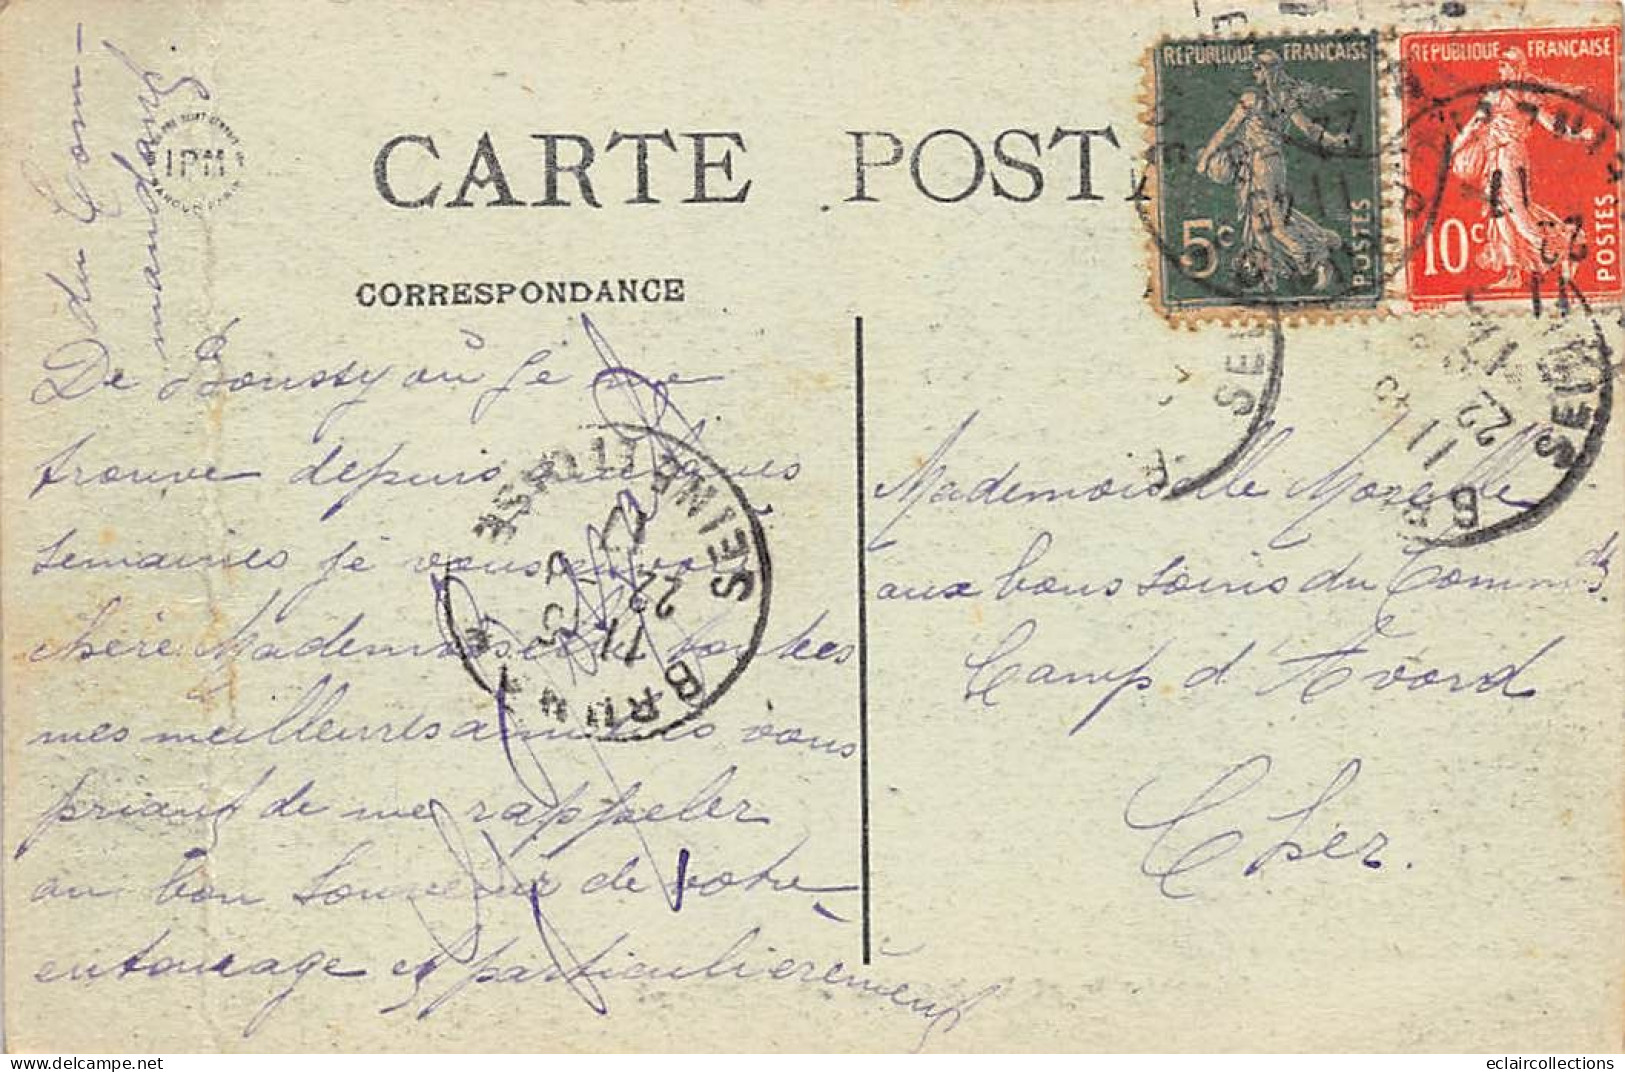 CARTE POST
CORRESPONDANCE
REPUBLIQUE FRANÇAISE
5c
POSTES
REPUBLIQUE FRANÇAISE
10c
POSTES
IPM
De Boussy où je me
trouve depuis quelques
semaines je vous envoie
chère Mademoiselle toutes
mes meilleures amitiés vous
priant de me rappeler
au bon souvenir de votre
entourage et particulièrement
du Com-
mandant
Mademoiselle
aux bons soins du Commdt
Camp d'Avord
Cher.
BRUNOY
SEINE ET OISE
11
22
eclaircollections